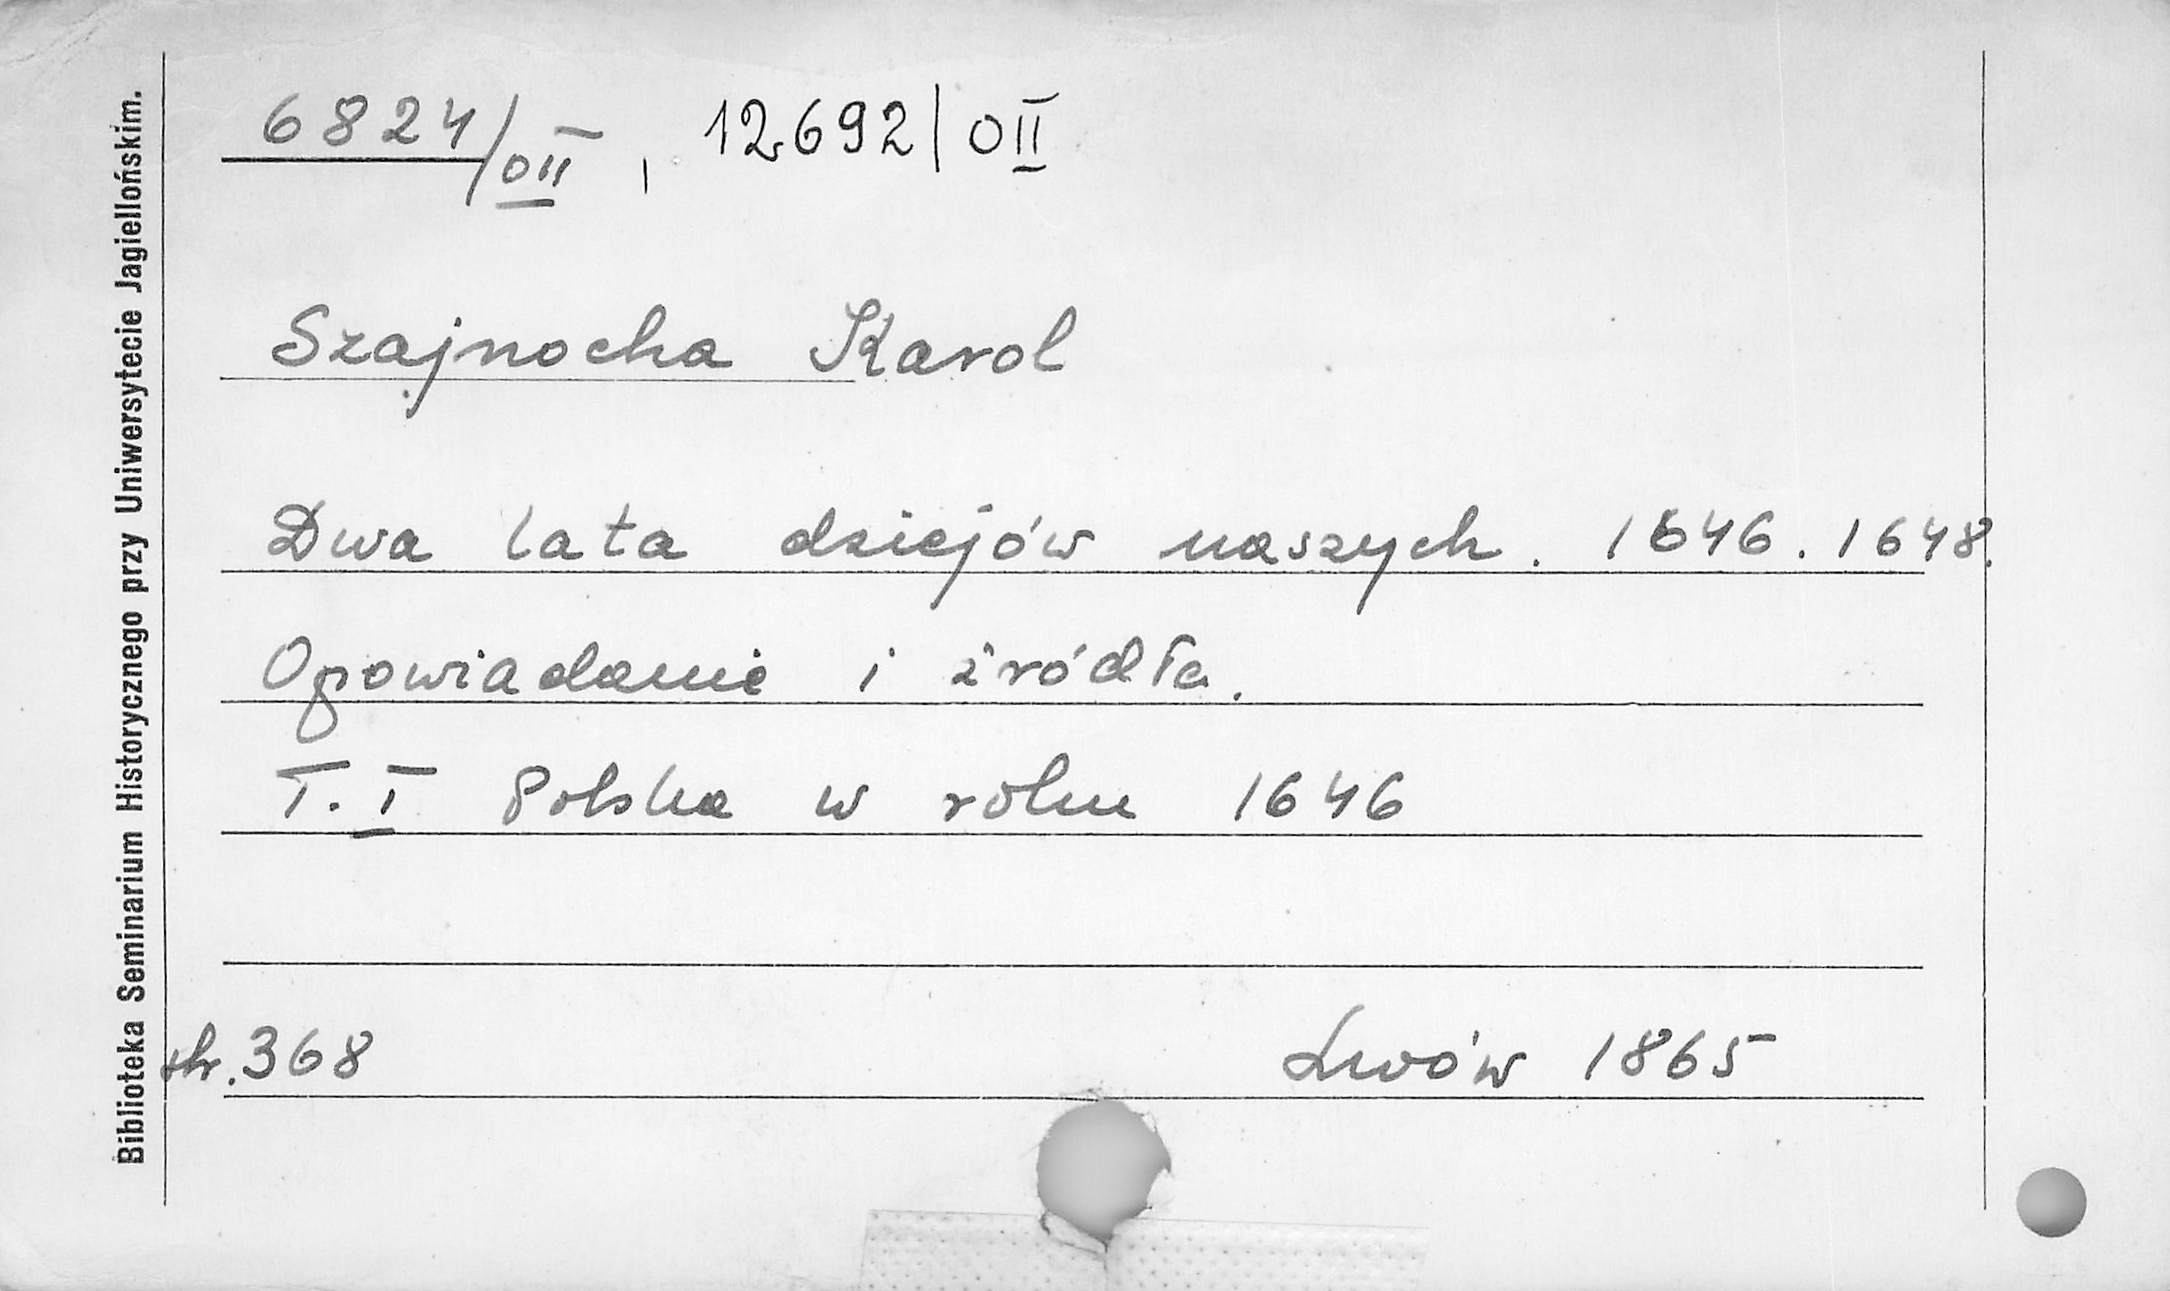 Biblioteka Seminarium Historycznego przy Uniwersytecie Jagiellońskim.
6824/OII, 12692/OII
Szajnocha Karol
Dwa lata dziejów naszych. 1646. 1648.
Opowiadanie i źródła.
T. I Polska w roku 1646
str. 368 Lwów 1865